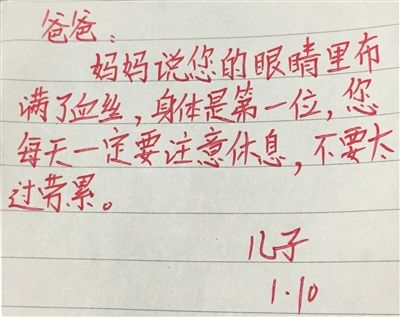 爸爸：
妈妈说您的眼睛里布
满了血丝，身体是第一位，您
每天一定要注意休息，不要太
过劳累。
儿子
1.10